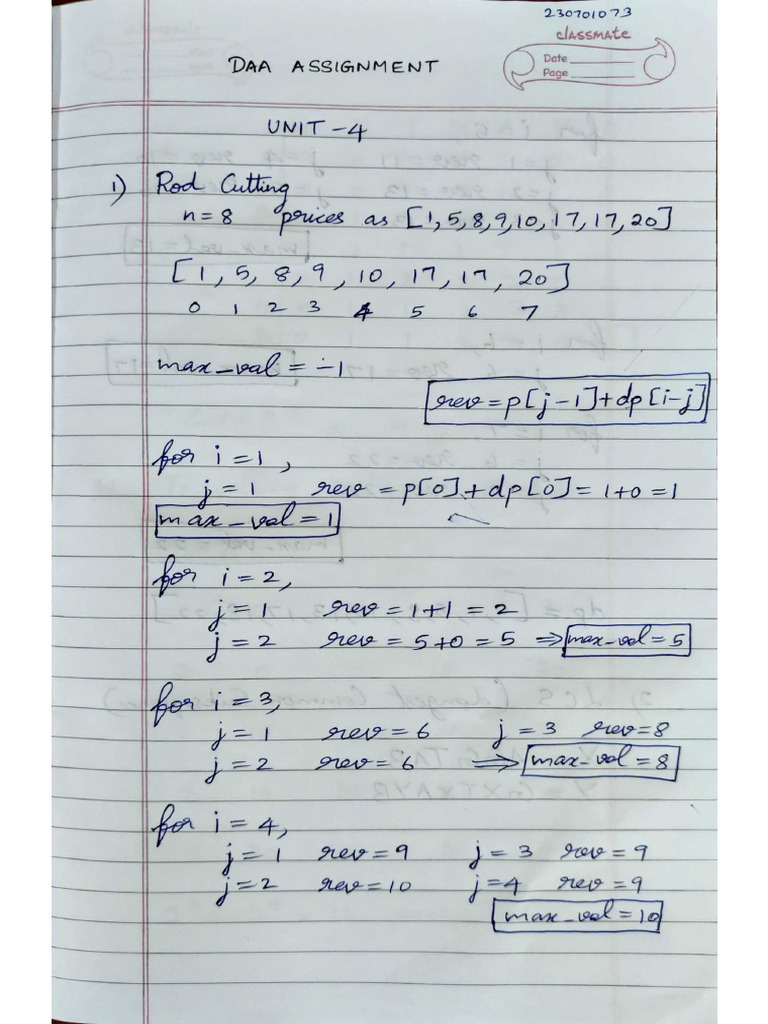 230701073
classmate
Date
Page
DAA ASSIGNMENT
UNIT-4
1) Rod Cutting
n=8 prices as [1,5,8,9,10,17,17,20]
[1, 5, 8, 9, 10, 17, 17, 20]
0 1 2 3 4 5 6 7
max_val = -1
rev = p[j-1]+dp[i-j]
for i=1,
j=1 rev = p[0]+dp[0]=1+0=1
max_val=1
for i=2,
j=1 rev=1+1=2
j=2 rev=5+0=5 ⇒ max_val=5
for i=3,
j=1 rev=6 j=3 rev=8
j=2 rev=6 ⇒ max_val=8
for i=4,
j=1 rev=9 j=3 rev=9
j=2 rev=10 j=4 rev=9
max_val=10